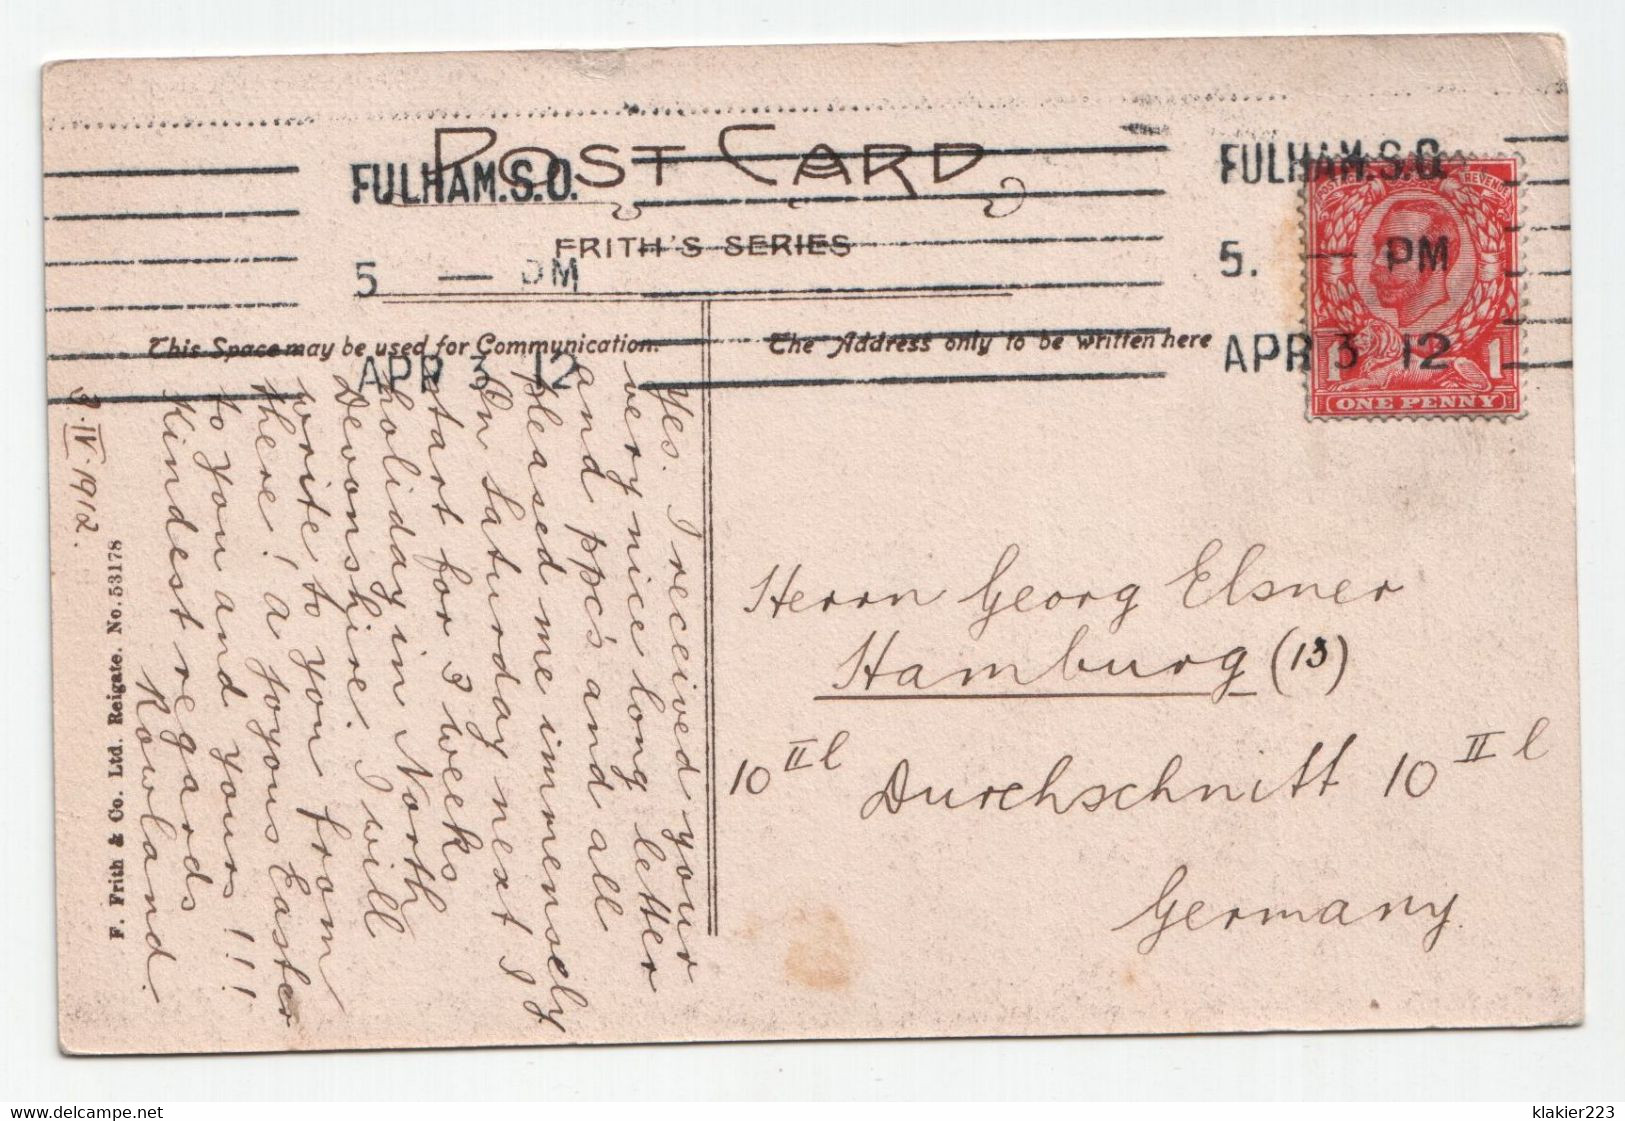 POST CARD
FRITH'S SERIES
FULHAM.S.O.
5 — PM
APR 3 12
FULHAM.S.O.
5. — PM
APR 3 12
POSTAGE REVENUE
1 1
ONE PENNY
This Space may be used for Communication.
The Address only to be written here
Yes. I received your
very nice long letter
and ppc's and all
pleased me immensely
On Saturday next I
start for 3 weeks
holiday in North
Devonshire. I will
write to you from
there! A joyous Easter
to you and yours!!!
Kindest regards
Rowland.
3.IV.1912.
F. Frith & Co. Ltd. Reigate. No. 53178
Herrn Georg Elsner
Hamburg (13)
10 II l Durchschnitt 10 II l
Germany.
delcampe.net
klakier223